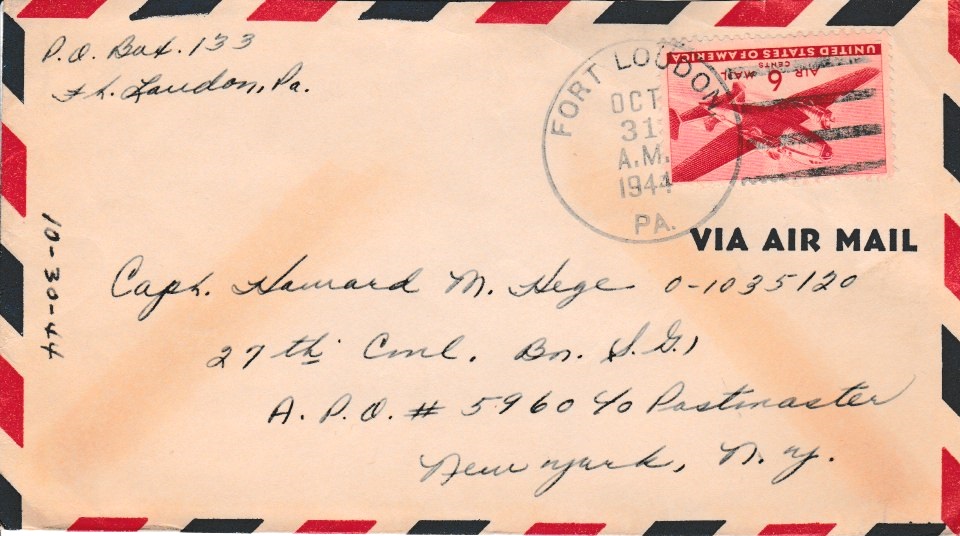 P.O. Box. 133
Ft. Loudon, Pa.
FORT LOUDON
OCT
31
A.M.
1944
PA.
UNITED STATES OF AMERICA
6
CENTS
AIR MAIL
VIA AIR MAIL
10-30-44
Capt. Howard M. Hege O-1035120
27th Cml. Bn. S.G.,
A.P.O. # 5960 c/o Postmaster
New York, N.Y.